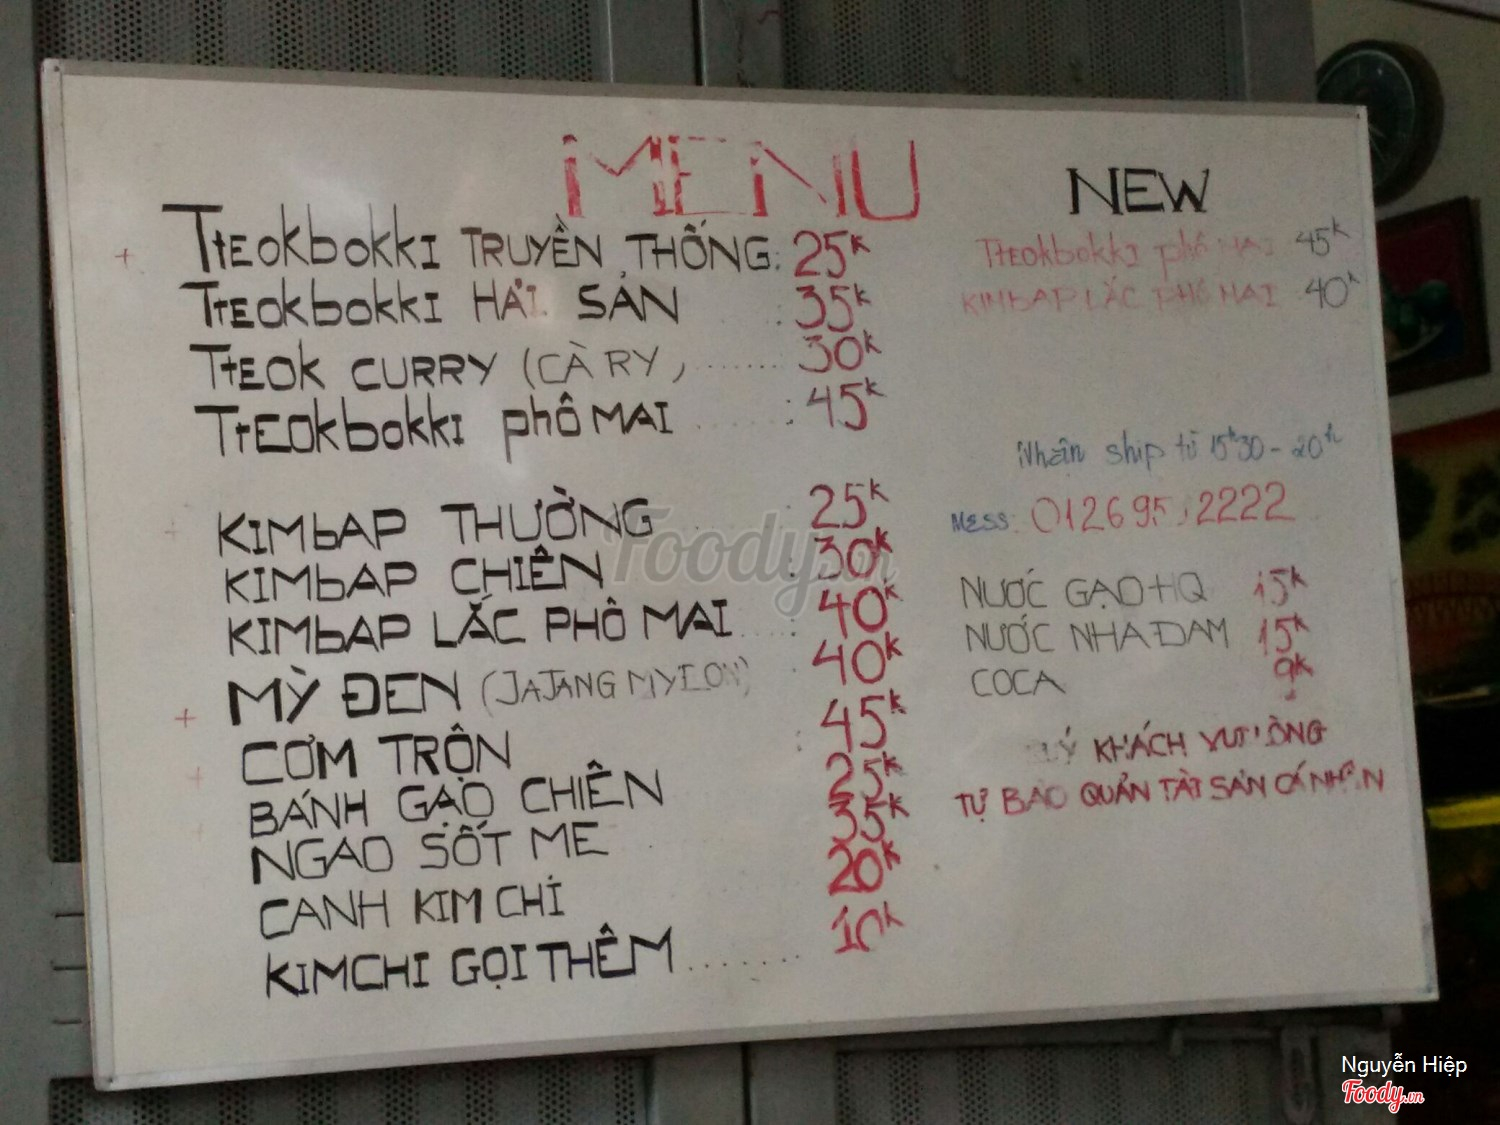 MENU
NEW
+ TtEOKbOKKi TRUYỀN THỐNG: 25k
TtEOKbOKKi HẢI SẢN : 35k
TtEOK CURRY (CÀ RY) ....... 30k
TtEOKbOKKi phô MAI ....... : 45k
+ KIMbAP THƯỜNG 25k
KIMbAP CHIÊN : 30k
KIMbAP LẮC PHÔ MAI ....: 40k
MỲ ĐEN (JAJANG MYEON) 40k
+ CƠM TRỘN : 45k
+ BÁNH GẠO CHIÊN 25k
NGAO SỐT ME 35k
CANH KIM CHI 20k
KIMCHI GỌI THÊM ........ 10k
TtEOKbokki phô MAI 45k
KIMbAP LẮC PHÔ MAI : 40k
Nhận ship từ 15h30 - 20h
MESS: 012695 2222
NƯỚC GẠO HQ 15k
NƯỚC NHA ĐAM 15k
COCA 9k
QUÝ KHÁCH VUI LÒNG
TỰ BẢO QUẢN TÀI SẢN CÁ NHÂN
Foody.vn
Nguyễn Hiệp
Foody.vn